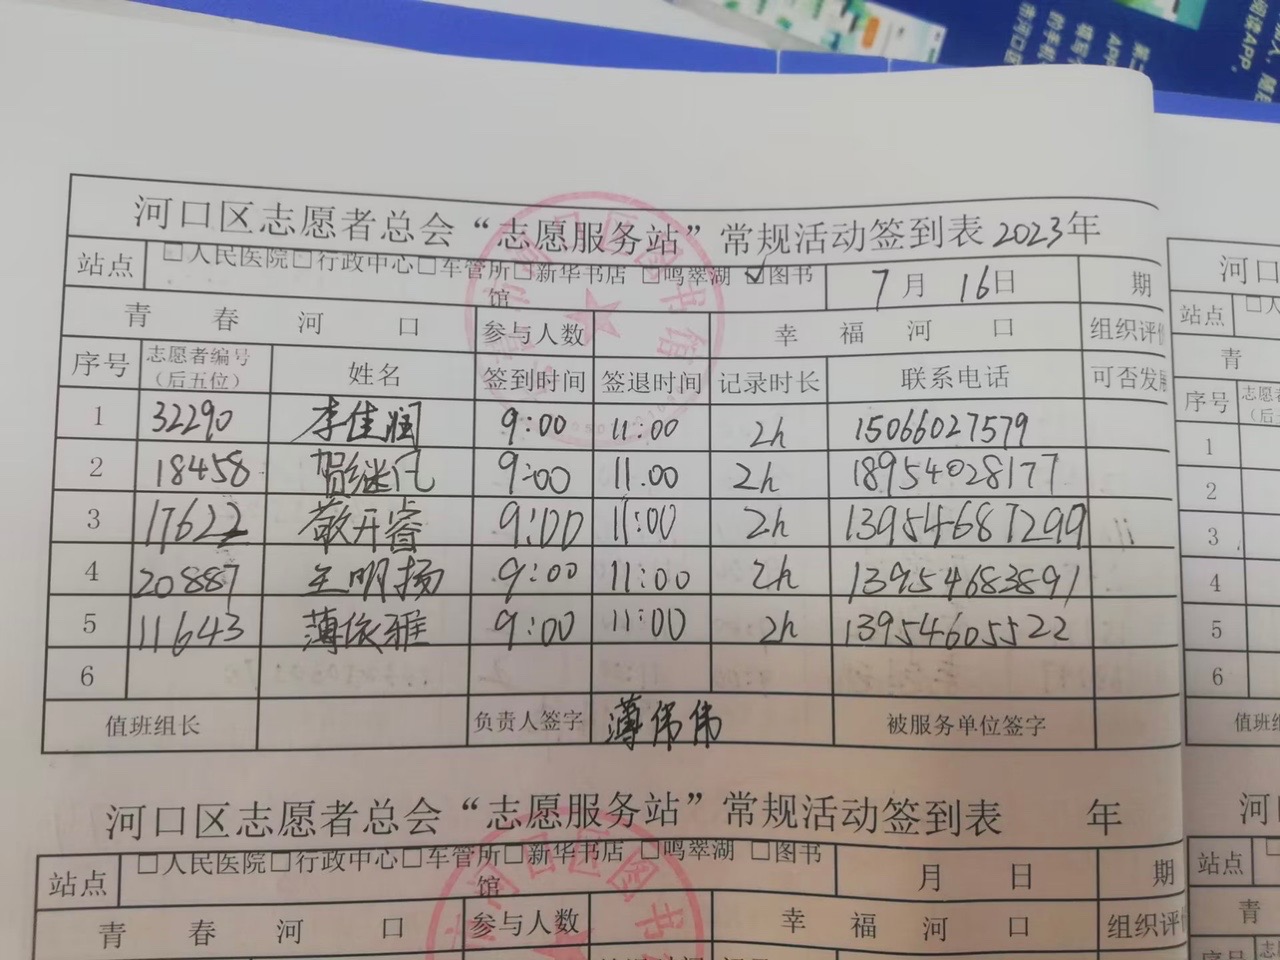 河口区志愿者总会“志愿服务站”常规活动签到表2023年
站点 □人民医院□行政中心□车管所□新华书店 □鸣翠湖 ☑图书馆 7月 16日 期
青春河口 参与人数 幸福河口 组织评价
序号 志愿者编号（后五位） 姓名 签到时间 签退时间 记录时长 联系电话 可否发
1 32290 李佳润 9:00 11:00 2h 15066027579
2 18458 贺继凡 9:00 11.00 2h 18954028177
3 17622 开睿 9:00 11:00 2h 13954687299
4 20887 王明扬 9:00 11:00 2h 13954683891
5 11643 薄依雅 9:00 11:00 2h 13954605522
6
值班组长 负责人签字 薄伟伟 被服务单位签字
河口区志愿者总会“志愿服务站”常规活动签到表 年
站点 □人民医院□行政中心□车管所□新华书店 □鸣翠湖 □图书馆 月 日 期
青春河口 参与人数 幸福河口 组织评
河口
站点
青
序号
1
2
3
4
5
6
值班组
河
站点
青